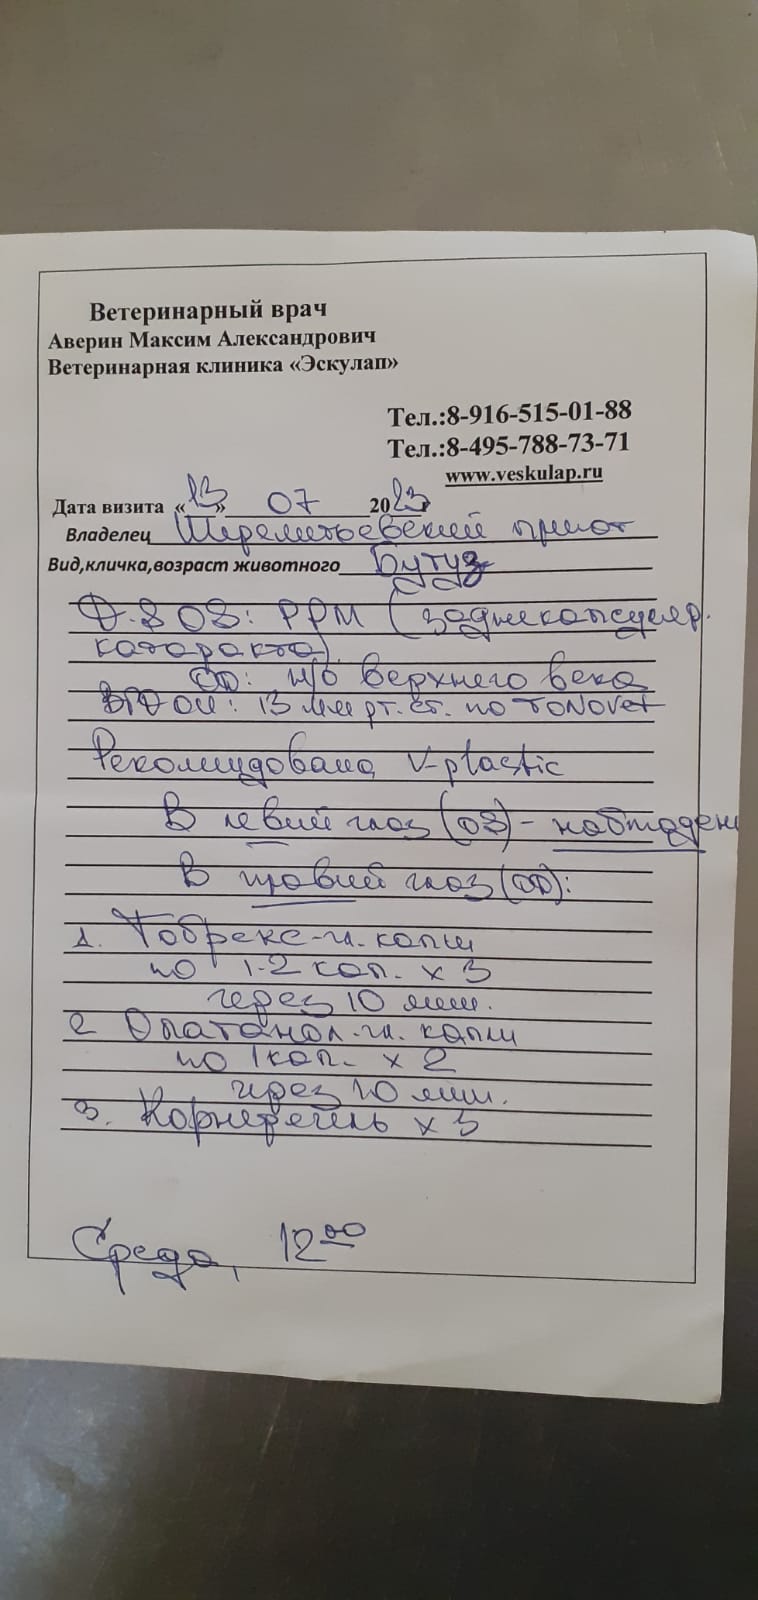 Ветеринарный врач
Аверин Максим Александрович
Ветеринарная клиника «Эскулап»
Тел.:8-916-515-01-88
Тел.:8-495-788-73-71
www.veskulap.ru
Дата визита «13» 07 2023г
Владелец Шереметьевский приют
Вид,кличка,возраст животного Бутуз
Д-з OS: PPM (заднекапсуляр.
катаракта).
OD: н/о верхнего века
ВГД OU: 13 мм рт. ст. по TONOVet
Рекомендована V-plastic
В левый глаз (OS) - наблюден
В правый глаз (OD):
1. Тобрекс-гл. капли
по 1-2 кап. x 3
через 10 мин.
2 Опатанол-гл. капли
по 1 кап. x 2
через 10 мин.
3. Корнерегель x 3
Среда, 12 00